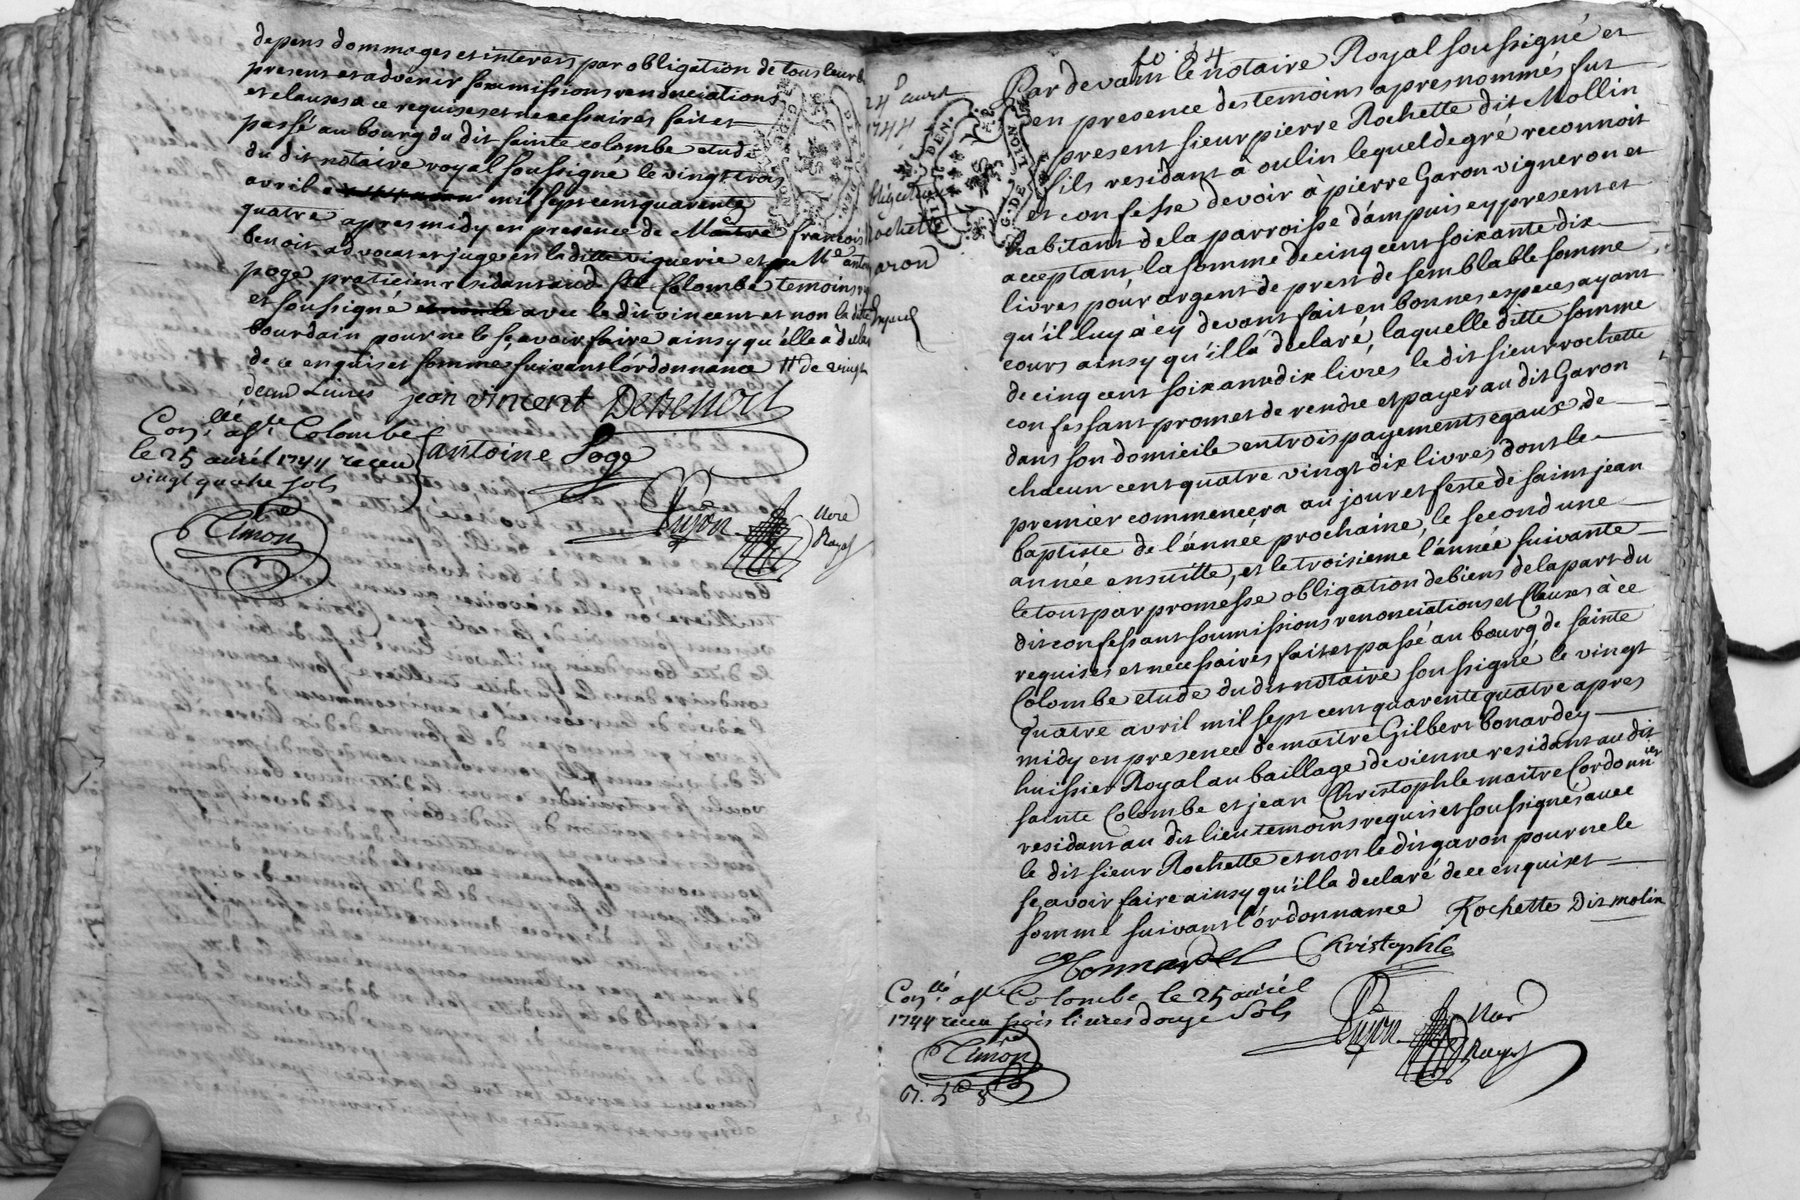 depens dommages et interets par obligation de tous leurs b
present et advenir soumissions renonciations
et clauses a ce requises et necessaires fait et
passé au bourg du dit sainte colombe etude
du dit notaire royal soussigné le vingt trois
avril mil sept cent quarente
quatre apres midy en presence de Maitre francois
benoit advocat et juge en la ditte viguerie et Me antoi
poge praticien residant aud Ste Colombe temoins
et soussigné avec le dit vincent et non la dite
bourdain pour ne le sçavoir faire ainsy qu'elle a declar
de ce enquis et sommes suivant l'ordonnance # de vingt
deux Livres jean vincent DeBenoit
Conllé a Ste Colombe
le 25 avril 1744 receu
vingt quatre sols
antoine Poge
Simon
Dujon Nore
Royal
fo. 34
24e avril
1744
bligation
Rochette
aron
Par devant le notaire Royal soussigné et
en presence des temoins apres nommés fut
present sieur pierre Rochette dit Mollin
fils residant à oulin lequel de gré reconnoit
et confesse devoir à pierre Garon vigneron et
habitant de la parroisse d'ampuis cy present et
acceptant la somme de cinq cent soixante dix
livres pour argent de prest de semblable somme
qu'il luy à cy devant fait en bonnes especes ayant
cours ainsy qu'il la declaré, laquelle ditte somme
de cinq cent soixante dix livres le dit sieur rochette
confessant promet de rendre et payer au dit Garon
dans son domicile en trois payements egaux de
chacun cent quatre vingt dix livres dont le
premier commencera au jour et feste de saint jean
baptiste de l'année prochaine, le second une
année ensuitte, et le troisieme l'année suivante
le tout par promesse obligation de biens de la part du
dit confessant soumissions renonciations et Clauses à ce
requises et necessaires fait et passé au bourg de sainte
Colombe etude du dit notaire soussigné le vingt
quatre avril mil sept cent quarente quatre apres
midy en presence de maitre Gilbert bonardey
huissier Royal au baillage de vienne residant au dit
sainte Colombe et jean Christophle maitre Cordonnier
residant au dit lieu temoins requis et soussignés avec
le dit sieur Rochette et non le dit garon pour ne le
sçavoir faire ainsy qu'il la declaré de ce enquis et
sommé suivant l'ordonnance Rochette Dit molin
Christophle
Conllé a Ste Colombe le 25 avril
1744 receu trois livres douze sols
Simon
Dujon Nore
Royal